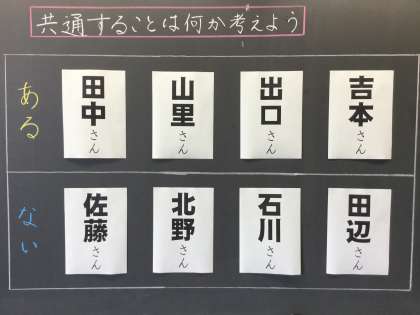 共通することは何か考えよう
ある
田中さん
山里さん
出口さん
吉本さん
ない
佐藤さん
北野さん
石川さん
田辺さん